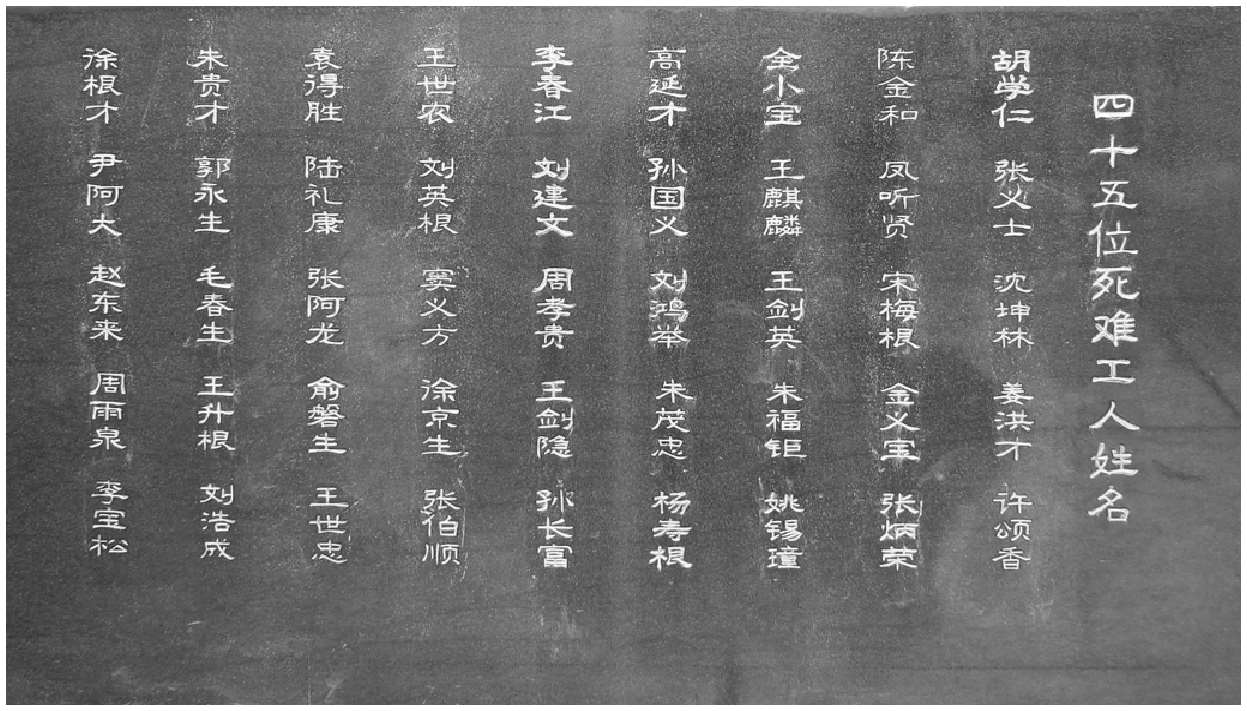 四十五位死难工人姓名
胡学仁 张义士 沈坤林 姜洪才 许颂香
陈金和 凤听贤 宋梅根 金义宝 张炳荣
全小宝 王麒麟 王剑英 朱福钜 姚锡璋
高延才 孙国义 刘鸿举 朱茂忠 杨寿根
李春江 刘建文 周孝贵 王剑隐 孙长富
王世农 刘英根 窦义方 徐京生 张伯顺
袁得胜 陆礼康 张阿龙 俞磐生 王世忠
朱贵才 郭永生 毛春生 王升根 刘浩成
徐根才 尹阿大 赵东来 周雨泉 李宝松